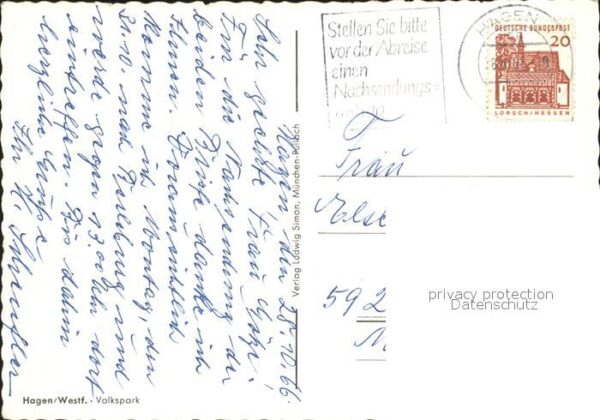 Hagen, den 28.10.66.
Sehr geehrte Frau Götz!
Für die Nachsendung der
beiden Briefe danke ich
Ihnen. Voraussichtlich
komme ich Montag, den
31.10. nach Freiburg und
werde gegen 13.00 Uhr dort
eintreffen. Bis dahin
herzliche Grüße
Ihr H.
Verlag Ludwig Simon, München-Pullach
Hagen/Westf. - Valkspark
Stellen Sie bitte
vor der Abreise
einen
Nachsendungs-
HAGEN
DEUTSCHE BUNDESPOST
20
LORSCH/HESSEN
Frau
Else
592
privacy protection
Datenschutz